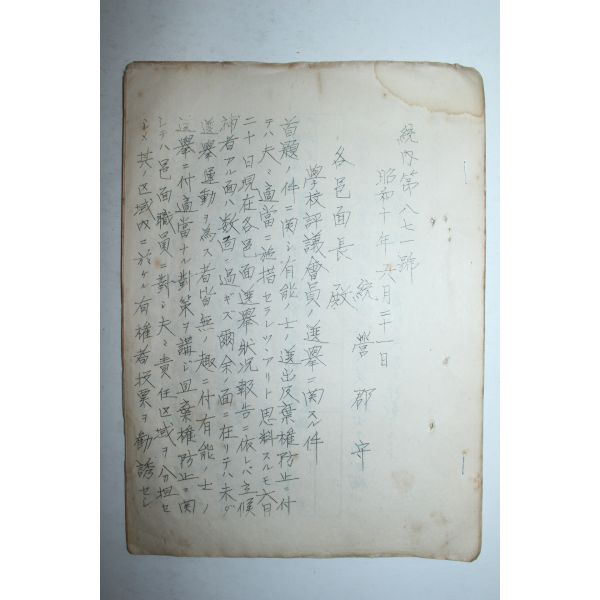 統內第八七一號
昭和十年六月二十一日
統營郡守
各邑面長殿
學校評議會員ノ選擧ニ関スル件
首題ノ件ニ関シ有能ノ士ノ選出及棄権防止ニ付
テハ夫々適當ニ施措セラレツヽアリト思料スルモ六月
二十日現在各邑面選擧狀況報告ニ依レバ立候
補者アル面ハ数面ニ過ギズ爾余ノ面ニ在リテハ未ダ
選擧運動ヲ為ス者皆無ノ趣ニ付有能ノ士ノ
選擧ニ付適當ナル對策ヲ講ジ且棄権防止ニ関
シテハ邑面職員ニ對シ夫々責任区域ヲ分担セ
シメ其ノ区域內ニ於ケル有権者投票ヲ勧誘セシ